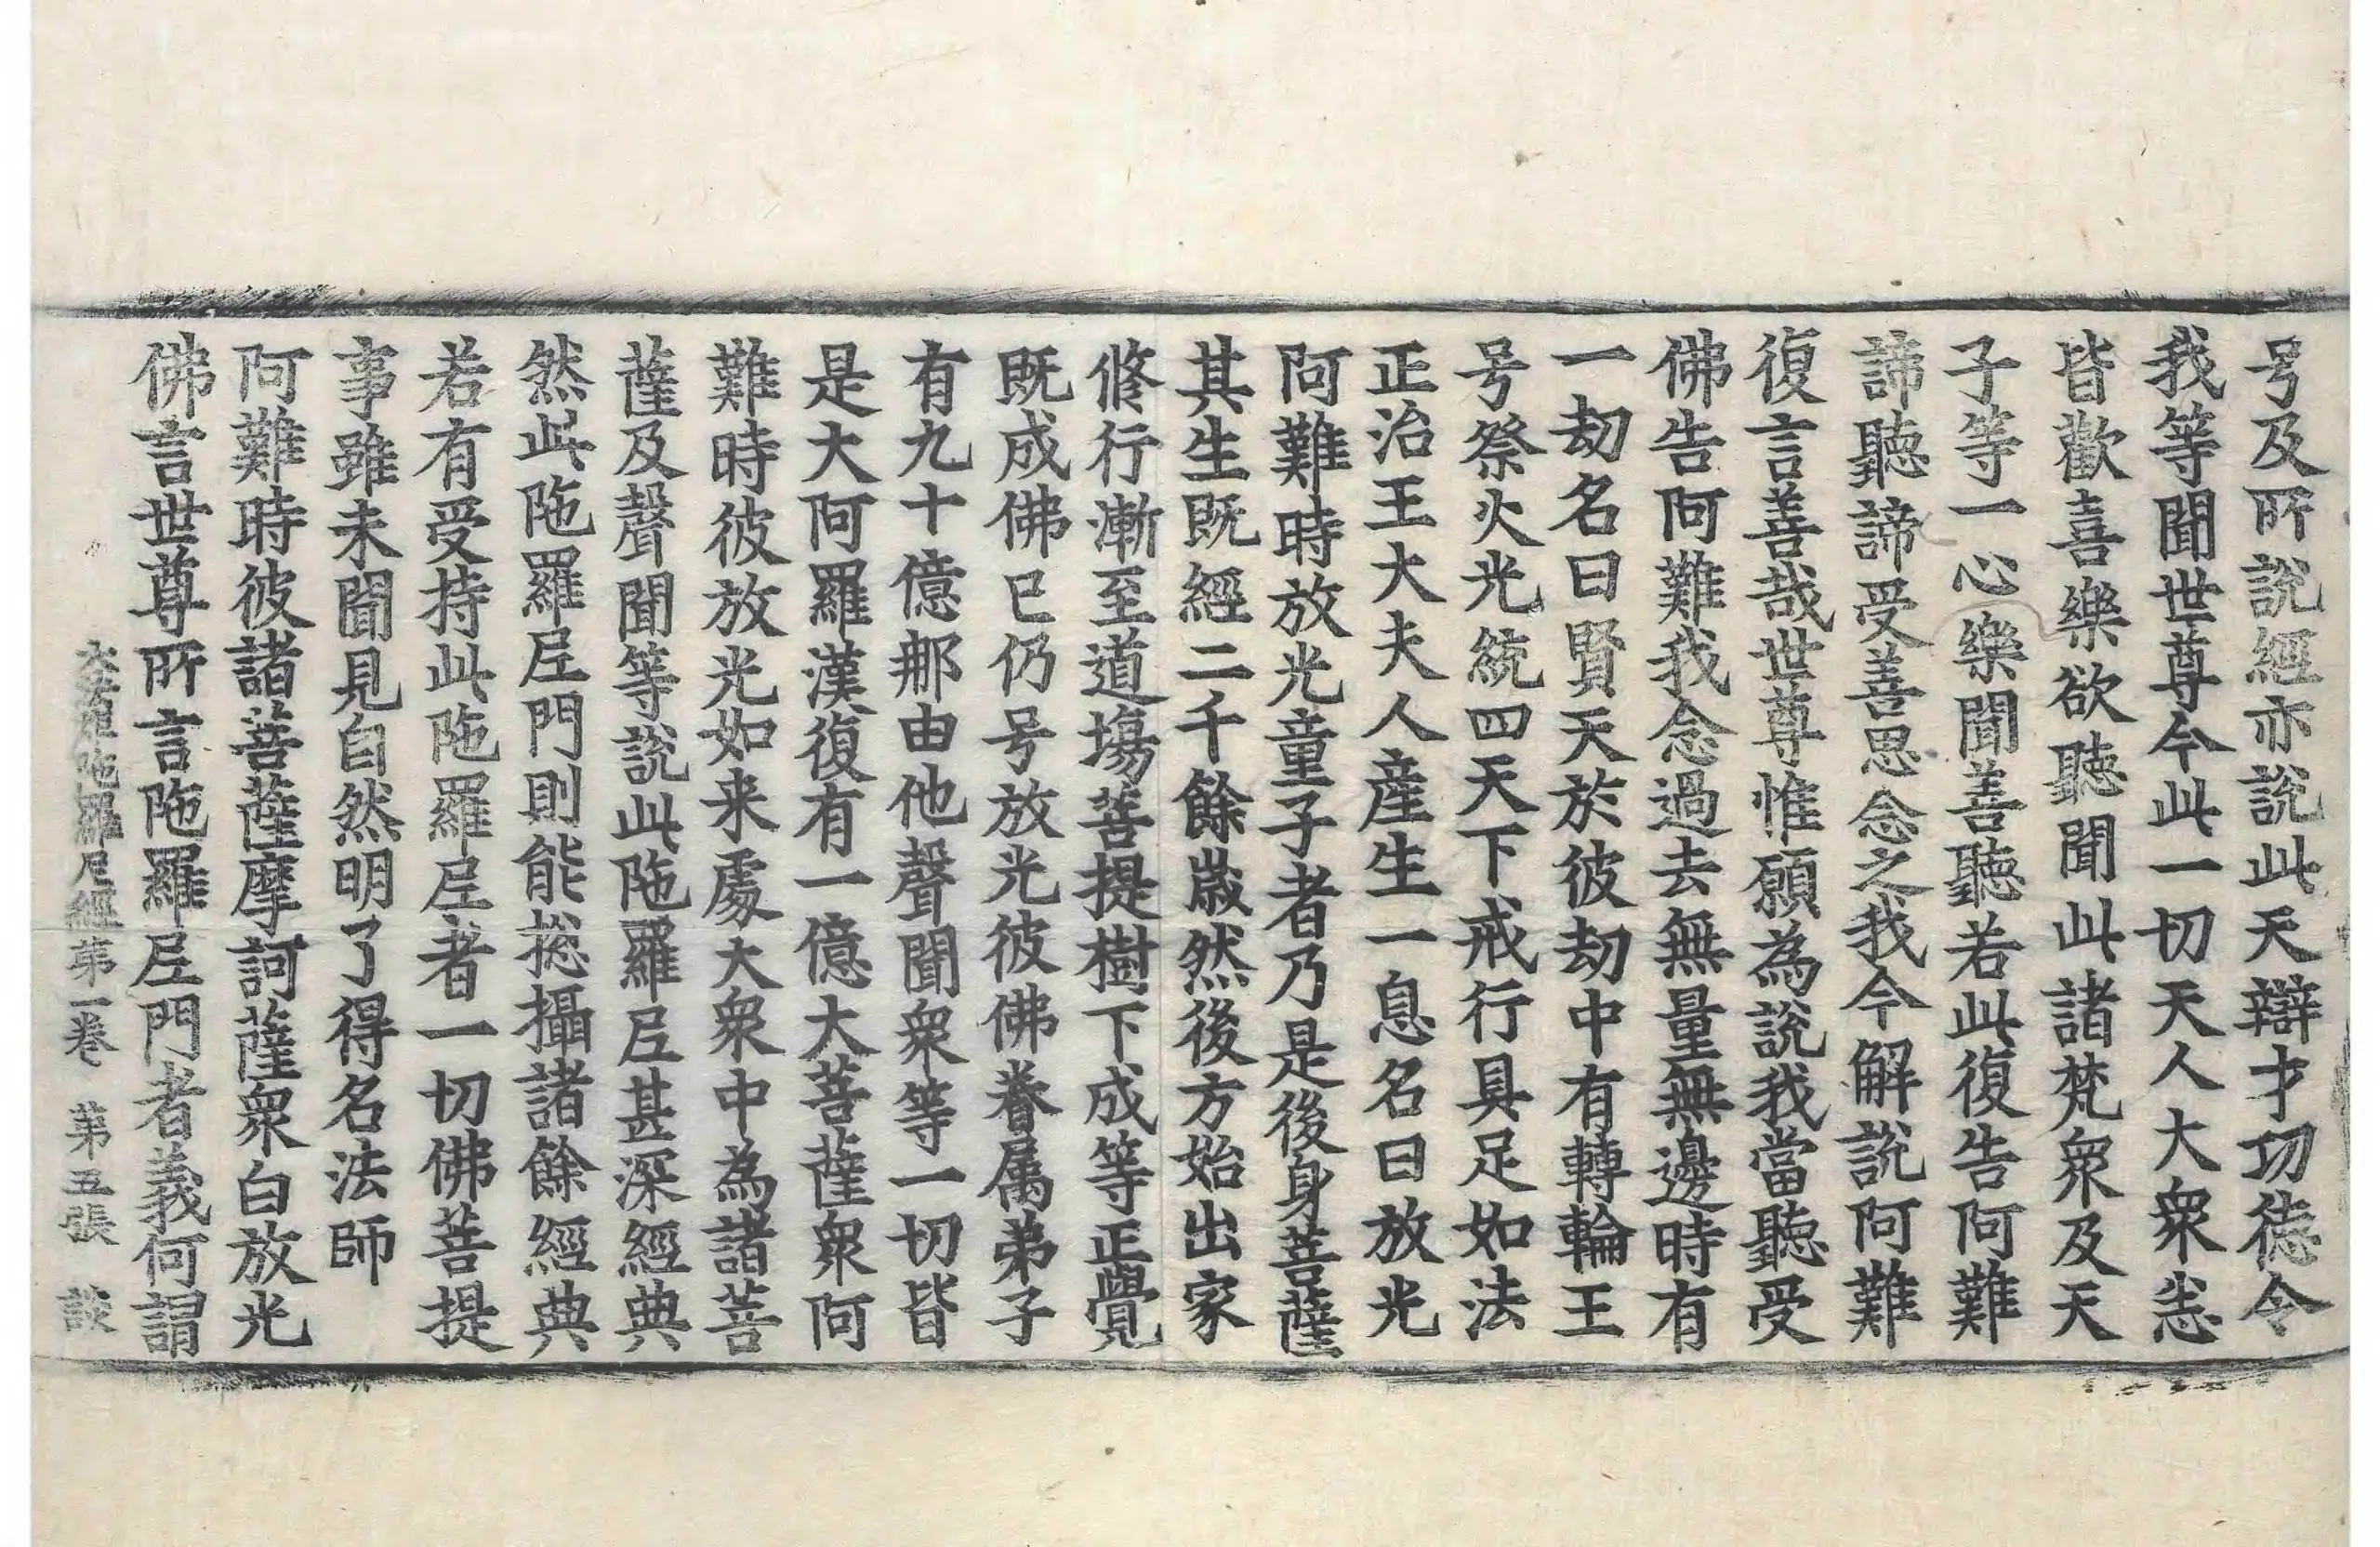 号及所說經亦說此天辯才功徳令
我等聞世尊今此一切天人大衆悉
皆歡喜樂欲聽聞此諸梵衆及天
子等一心樂聞善聽若此復告阿難
諦聽諦受善思念之我今解說阿難
復言善哉世尊惟願為說我當聽受
佛告阿難我念過去無量無邊時有
一劫名曰賢天於彼劫中有轉輪王
号祭火光統四天下戒行具足如法
正治王大夫人産生一息名曰放光
阿難時放光童子者乃是後身菩薩
其生既經二千餘歳然後方始出家
修行漸至道場菩提樹下成等正覺
既成佛已仍号放光彼佛眷属弟子
有九十億那由他聲聞衆等一切皆
是大阿羅漢復有一億大菩薩衆阿
難時彼放光如来處大衆中為諸菩
薩及聲聞等說此陁羅尼甚深經典
然此陁羅尼門則能揔攝諸餘經典
若有受持此陁羅尼者一切佛菩提
事雖未聞見自然明了得名法師
阿難時彼諸菩薩摩訶薩衆白放光
佛言世尊所言陁羅尼門者義何謂
大法炬陁羅尼經第一卷　第五張　談